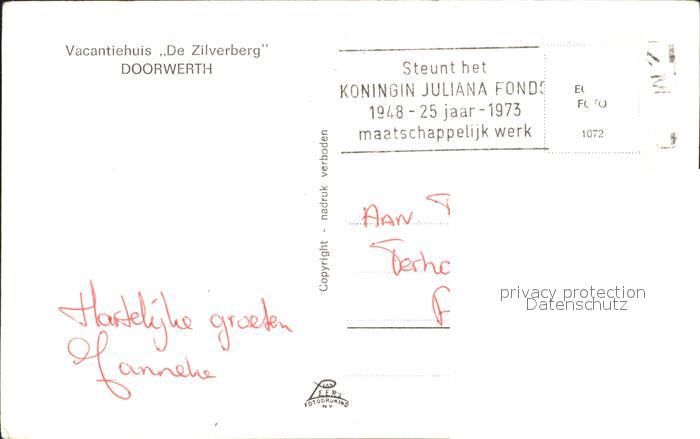 Vacantiehuis „De Zilverberg”
DOORWERTH
Steunt het
KONINGIN JULIANA FONDS
1948 - 25 jaar - 1973
maatschappelijk werk
1072
Copyright - nadruk verboden
AAN
Terho
Hartelijke groeten
Janneke
privacy protection
Datenschutz
VAN
LEER'S
FOTODRUKIND
N.V.